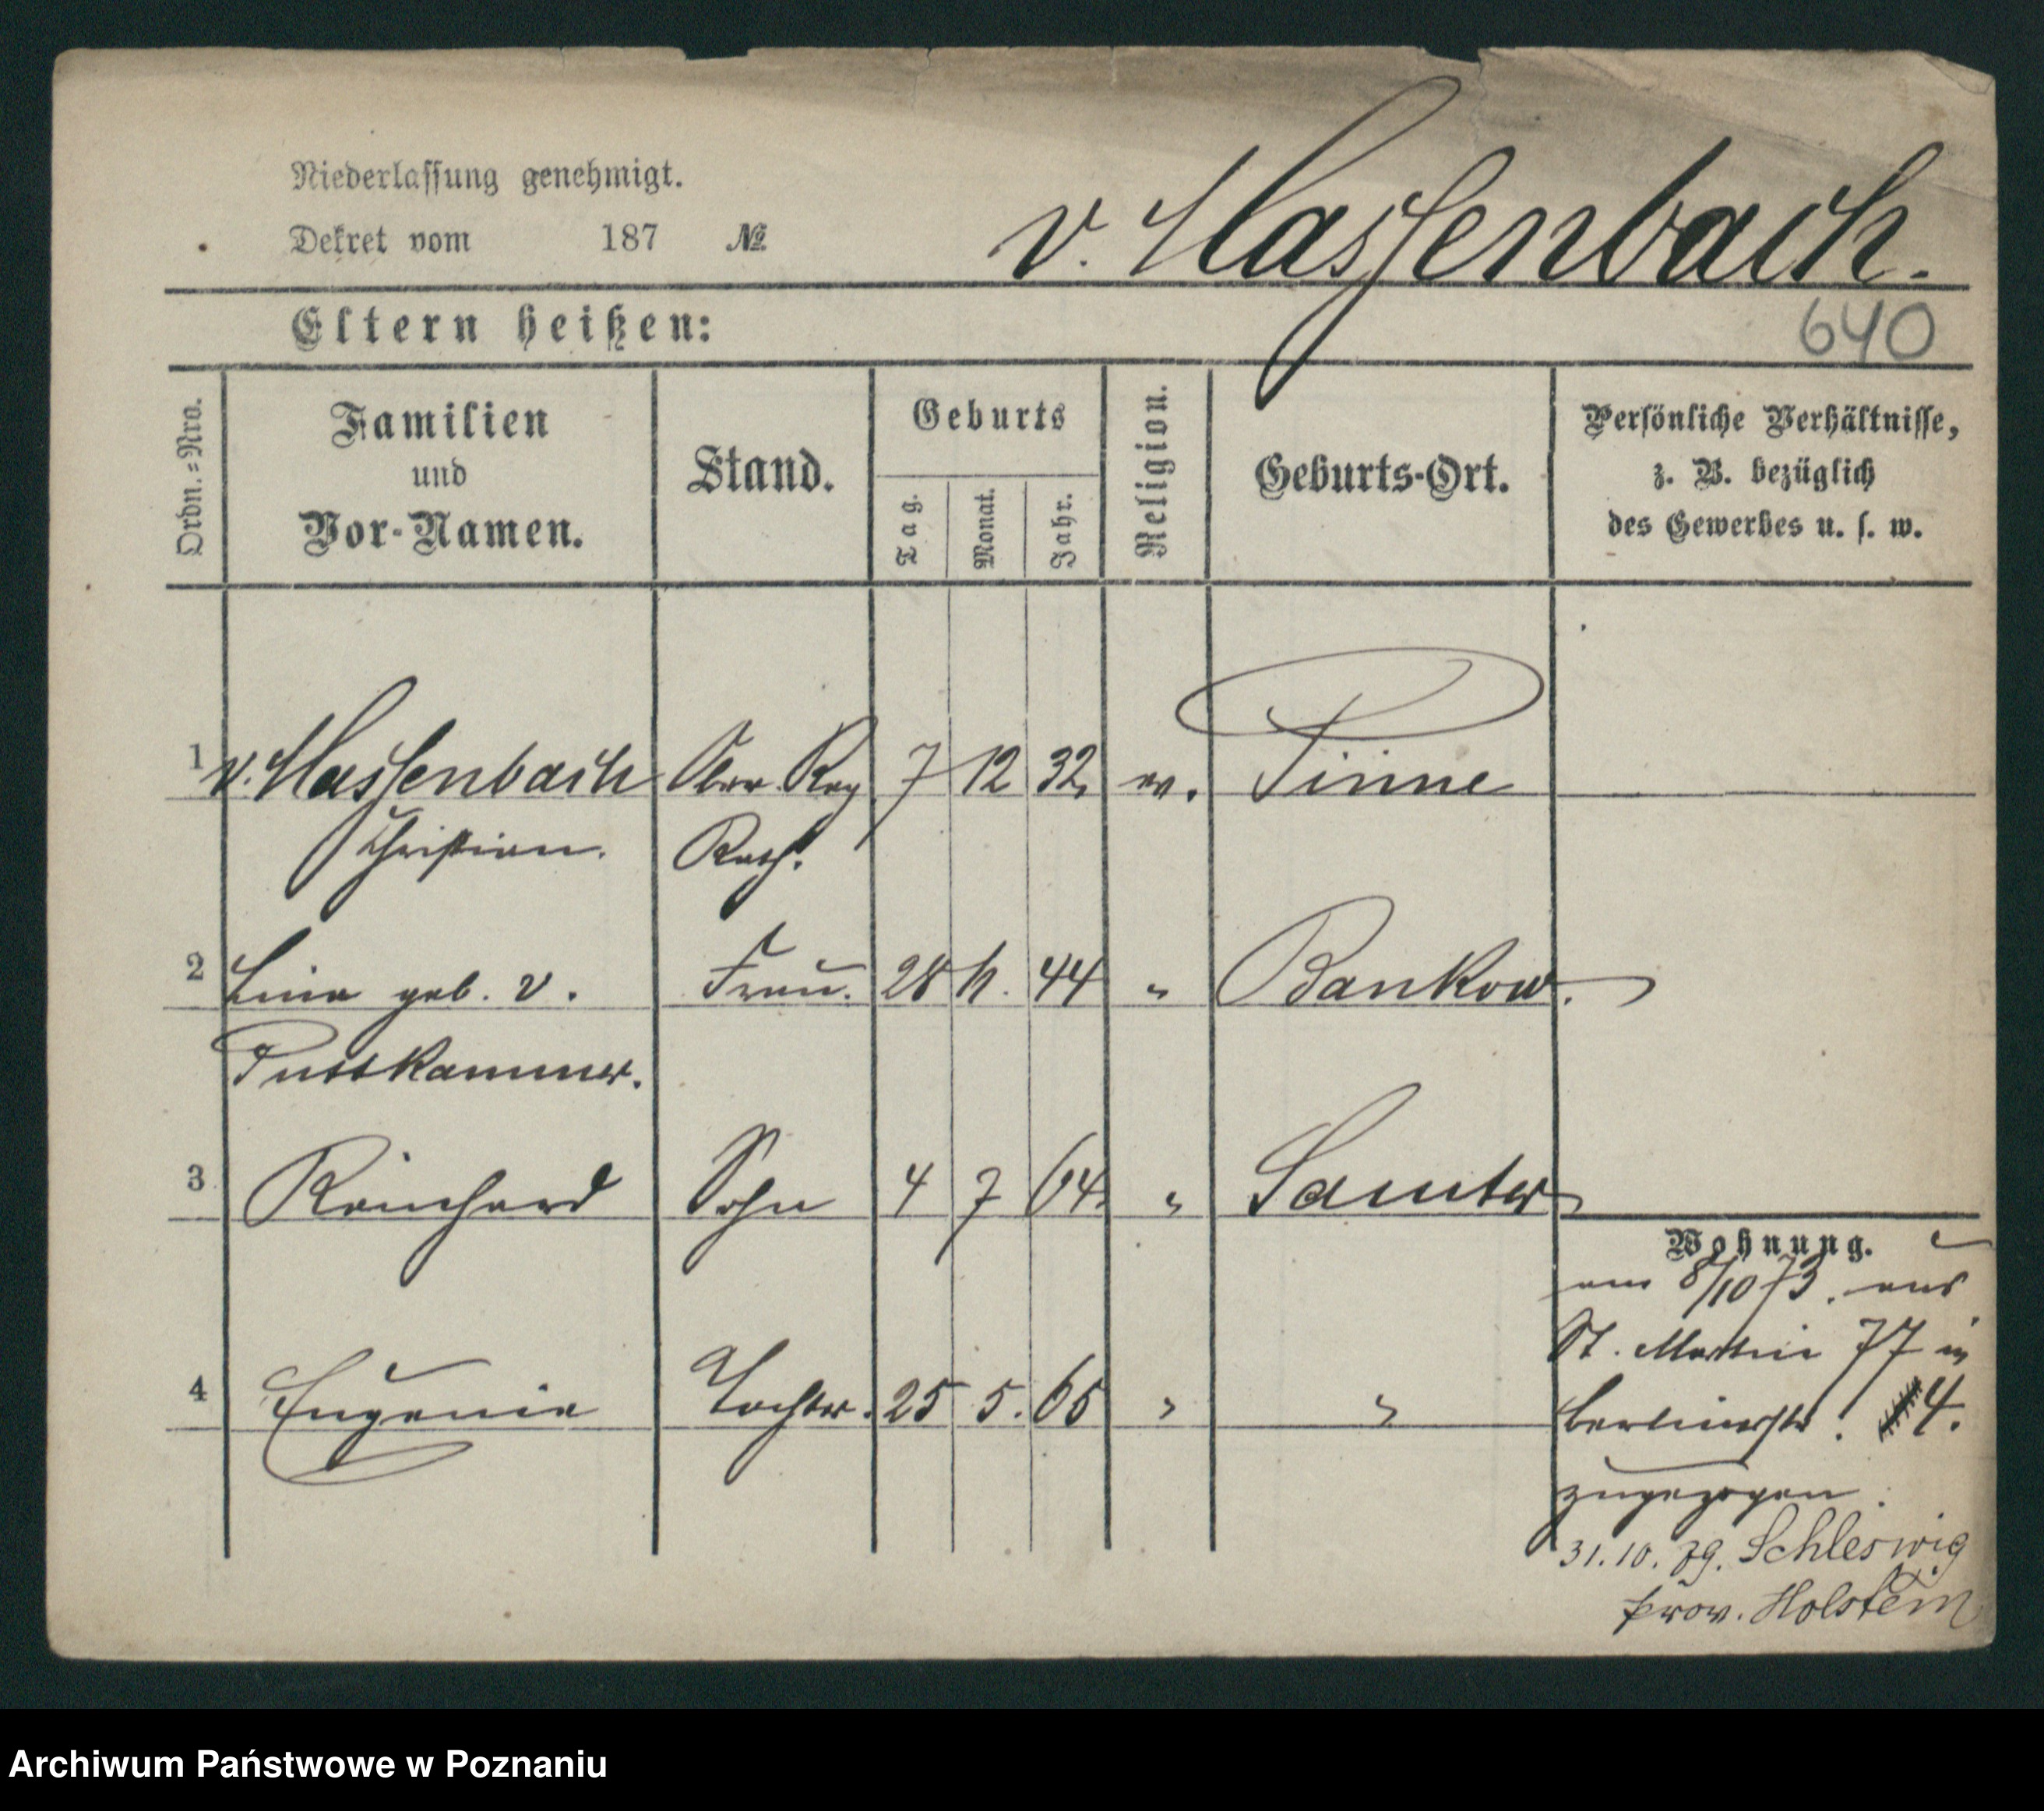 Niederlassung genehmigt.
Dekret vom 187 №
v. Hassenbach.
Eltern heißen:
640
Ordn.=Nro.
Familien
und
Vor-Namen.
Stand.
Geburts
Tag.
Monat.
Jahr.
Religion.
Geburts-Ort.
Persönliche Verhältnisse,
z. B. bezüglich
des Gewerbes u. s. w.
1 v. Hassenbach Ober Reg 7 12 32 ev. Pinne
Christian. Rath.
2 Lina geb. v. Frau. 28 44 " Bankow.
Puttkammer.
3 Reinhard Sohn 4 7 64. " Samter
Wohnung.
am 8/10 73. aus
St. Martin 77 in
4 Eugenie Tochter. 25 5. 65 " "
Berlinerstr. 4.
zugezogen.
31.10.79. Schleswig
prov. Holstein
Archiwum Państwowe w Poznaniu